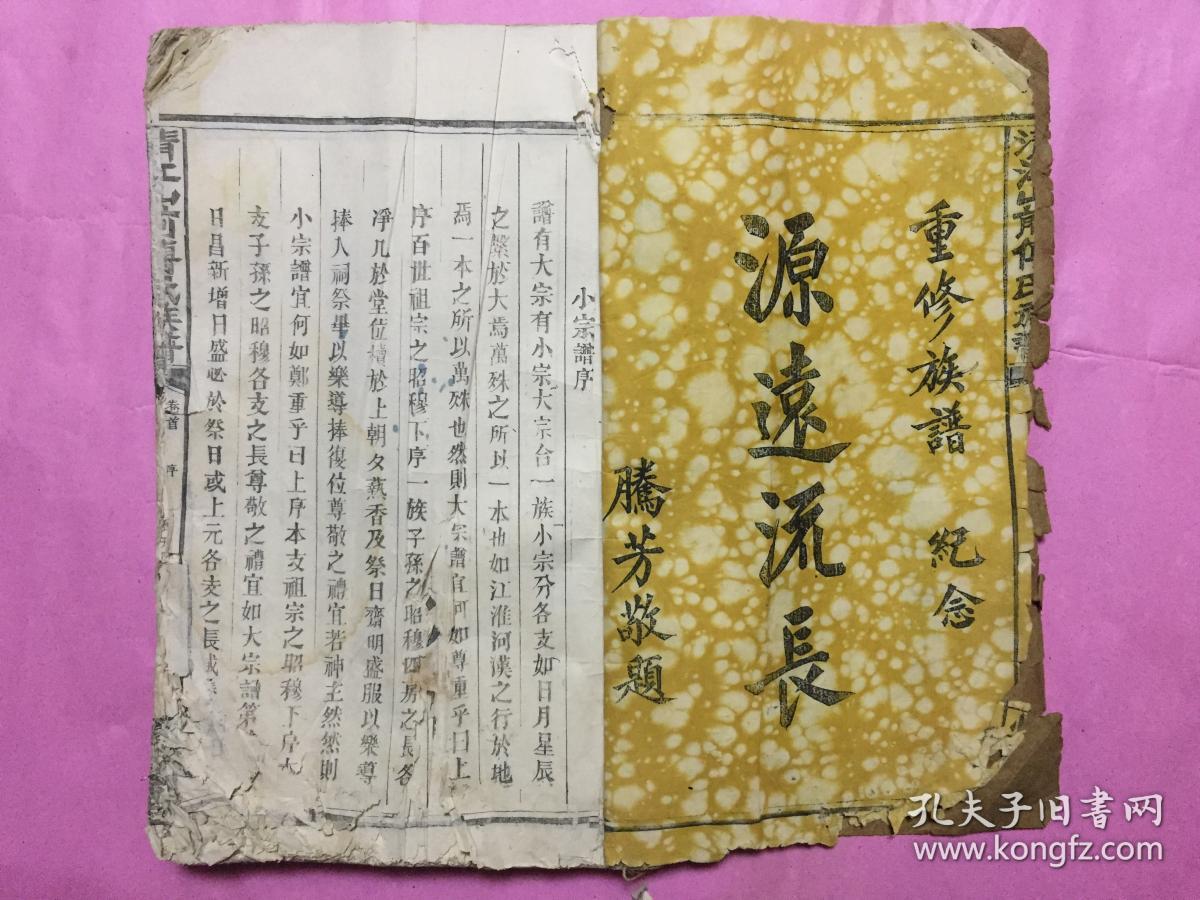 重修族譜 紀念
源遠流長
騰芳敬題
小宗譜序
譜有大宗有小宗大宗合一族小宗分各支如日月星辰
之繫於大焉萬殊之所以一本也如江淮河漢之行於地
焉一本之所以萬殊也然則大宗譜宜何如尊重乎曰上
序百世祖宗之昭穆下序一族子孫之昭穆四房之長各
凈几於堂位 於上朝夕執香及祭日齋明盛服以樂導
捧人祠祭畢以樂導捧復位尊敬之禮宜若神主然然則
小宗譜宜何如鄭重乎曰上序本支祖宗之昭穆下序本
支子孫之昭穆各支之長尊敬之禮宜如大宗譜第
日昌新增日盛必於祭日或上元各支之長
族譜
卷首
序
孔夫子旧书网
www.kongfz.com